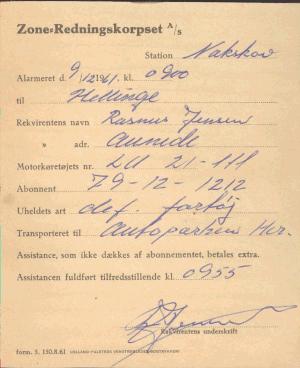 Zone-Redningskorpset A/s
Station Nakskov
Alarmeret d. 9/12 1961 kl. 0900
til Hellinge
Rekvirentens navn Rasmus Jensen
» adr.
Motorkøretøjets nr. LU 21-111
Abonnent 79-12-1212
Uheldets art def. fartøj
Transporteret til Autoparken Her.
Assistance, som ikke dækkes af abonnementet, betales extra.
Assistancen fuldført tilfredsstillende kl. 0955
Rekvirentens underskrift
form. 5. 150.8.61